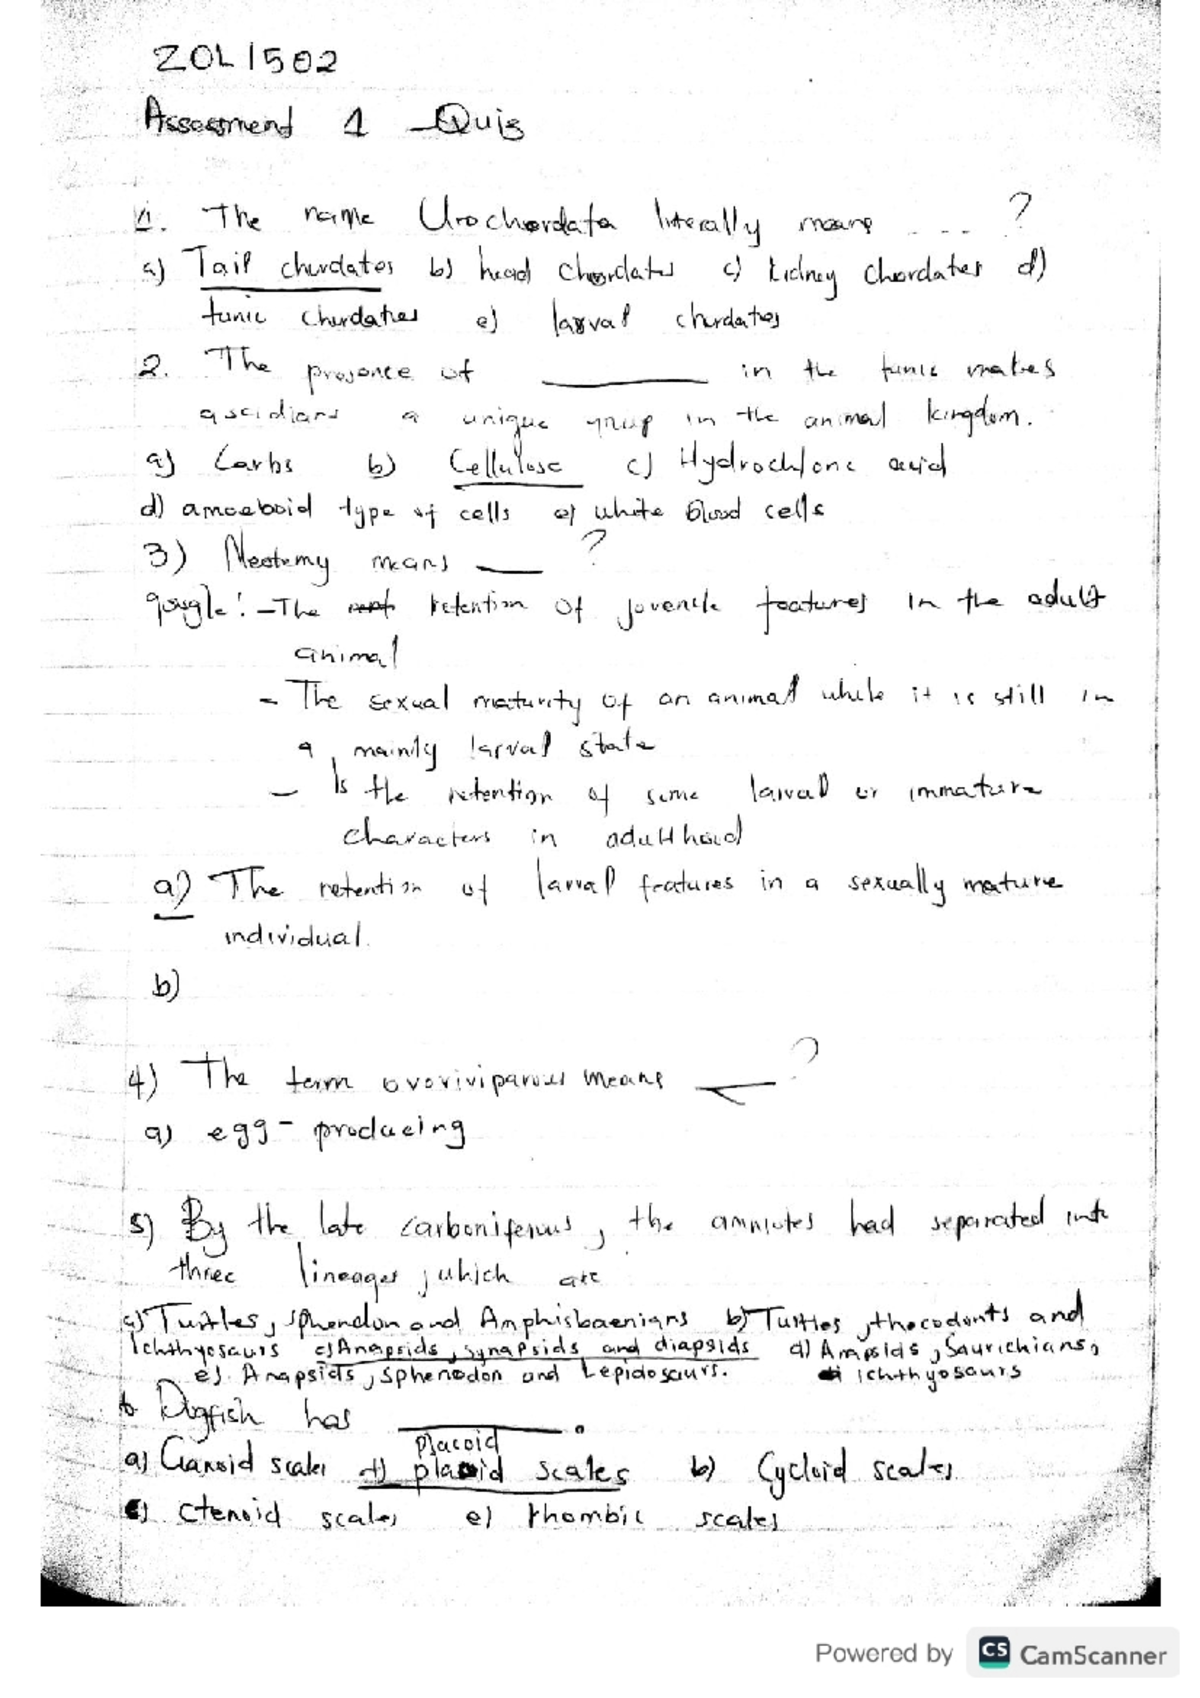 ZOL1502
Assessment 1 - Quiz
1. The name Urochordata literally means .... ?
a) Tail chordates b) head chordates c) kidney chordates d)
tunic chordates e) larval chordates
2. The presence of ________ in the tunic makes
ascidians a unique group in the animal kingdom.
a) Carbs b) Cellulose c) Hydrochloric acid
d) amoeboid type of cells e) white blood cells
3) Neotemy means ___ ?
google: - The retention of juvenile features in the adult
animal
- The sexual maturity of an animal while it is still in
a mainly larval state
- Is the retention of some larval or immature
characters in adulthood
a) The retention of larval features in a sexually mature
individual.
b)
4) The term ovoriviparous means ____ ?
a) egg - producing
5) By the late carboniferous, the amniotes had separated into
three lineages, which are
a) Turtles, sphenodon and Amphisbaenians b) Turtles, thecodonts and
Ichthyosaurs c) Anapsids, synapsids and diapsids d) Anapsids, Saurichians,
e). Anapsids, Sphenodon and Lepidosaurs. ichthyosaurs
6. Dogfish has ________.
placoid
a) Ganoid scales d) placoid scales b) Cycloid scales
c) ctenoid scales e) rhombic scales
Powered by CS CamScanner